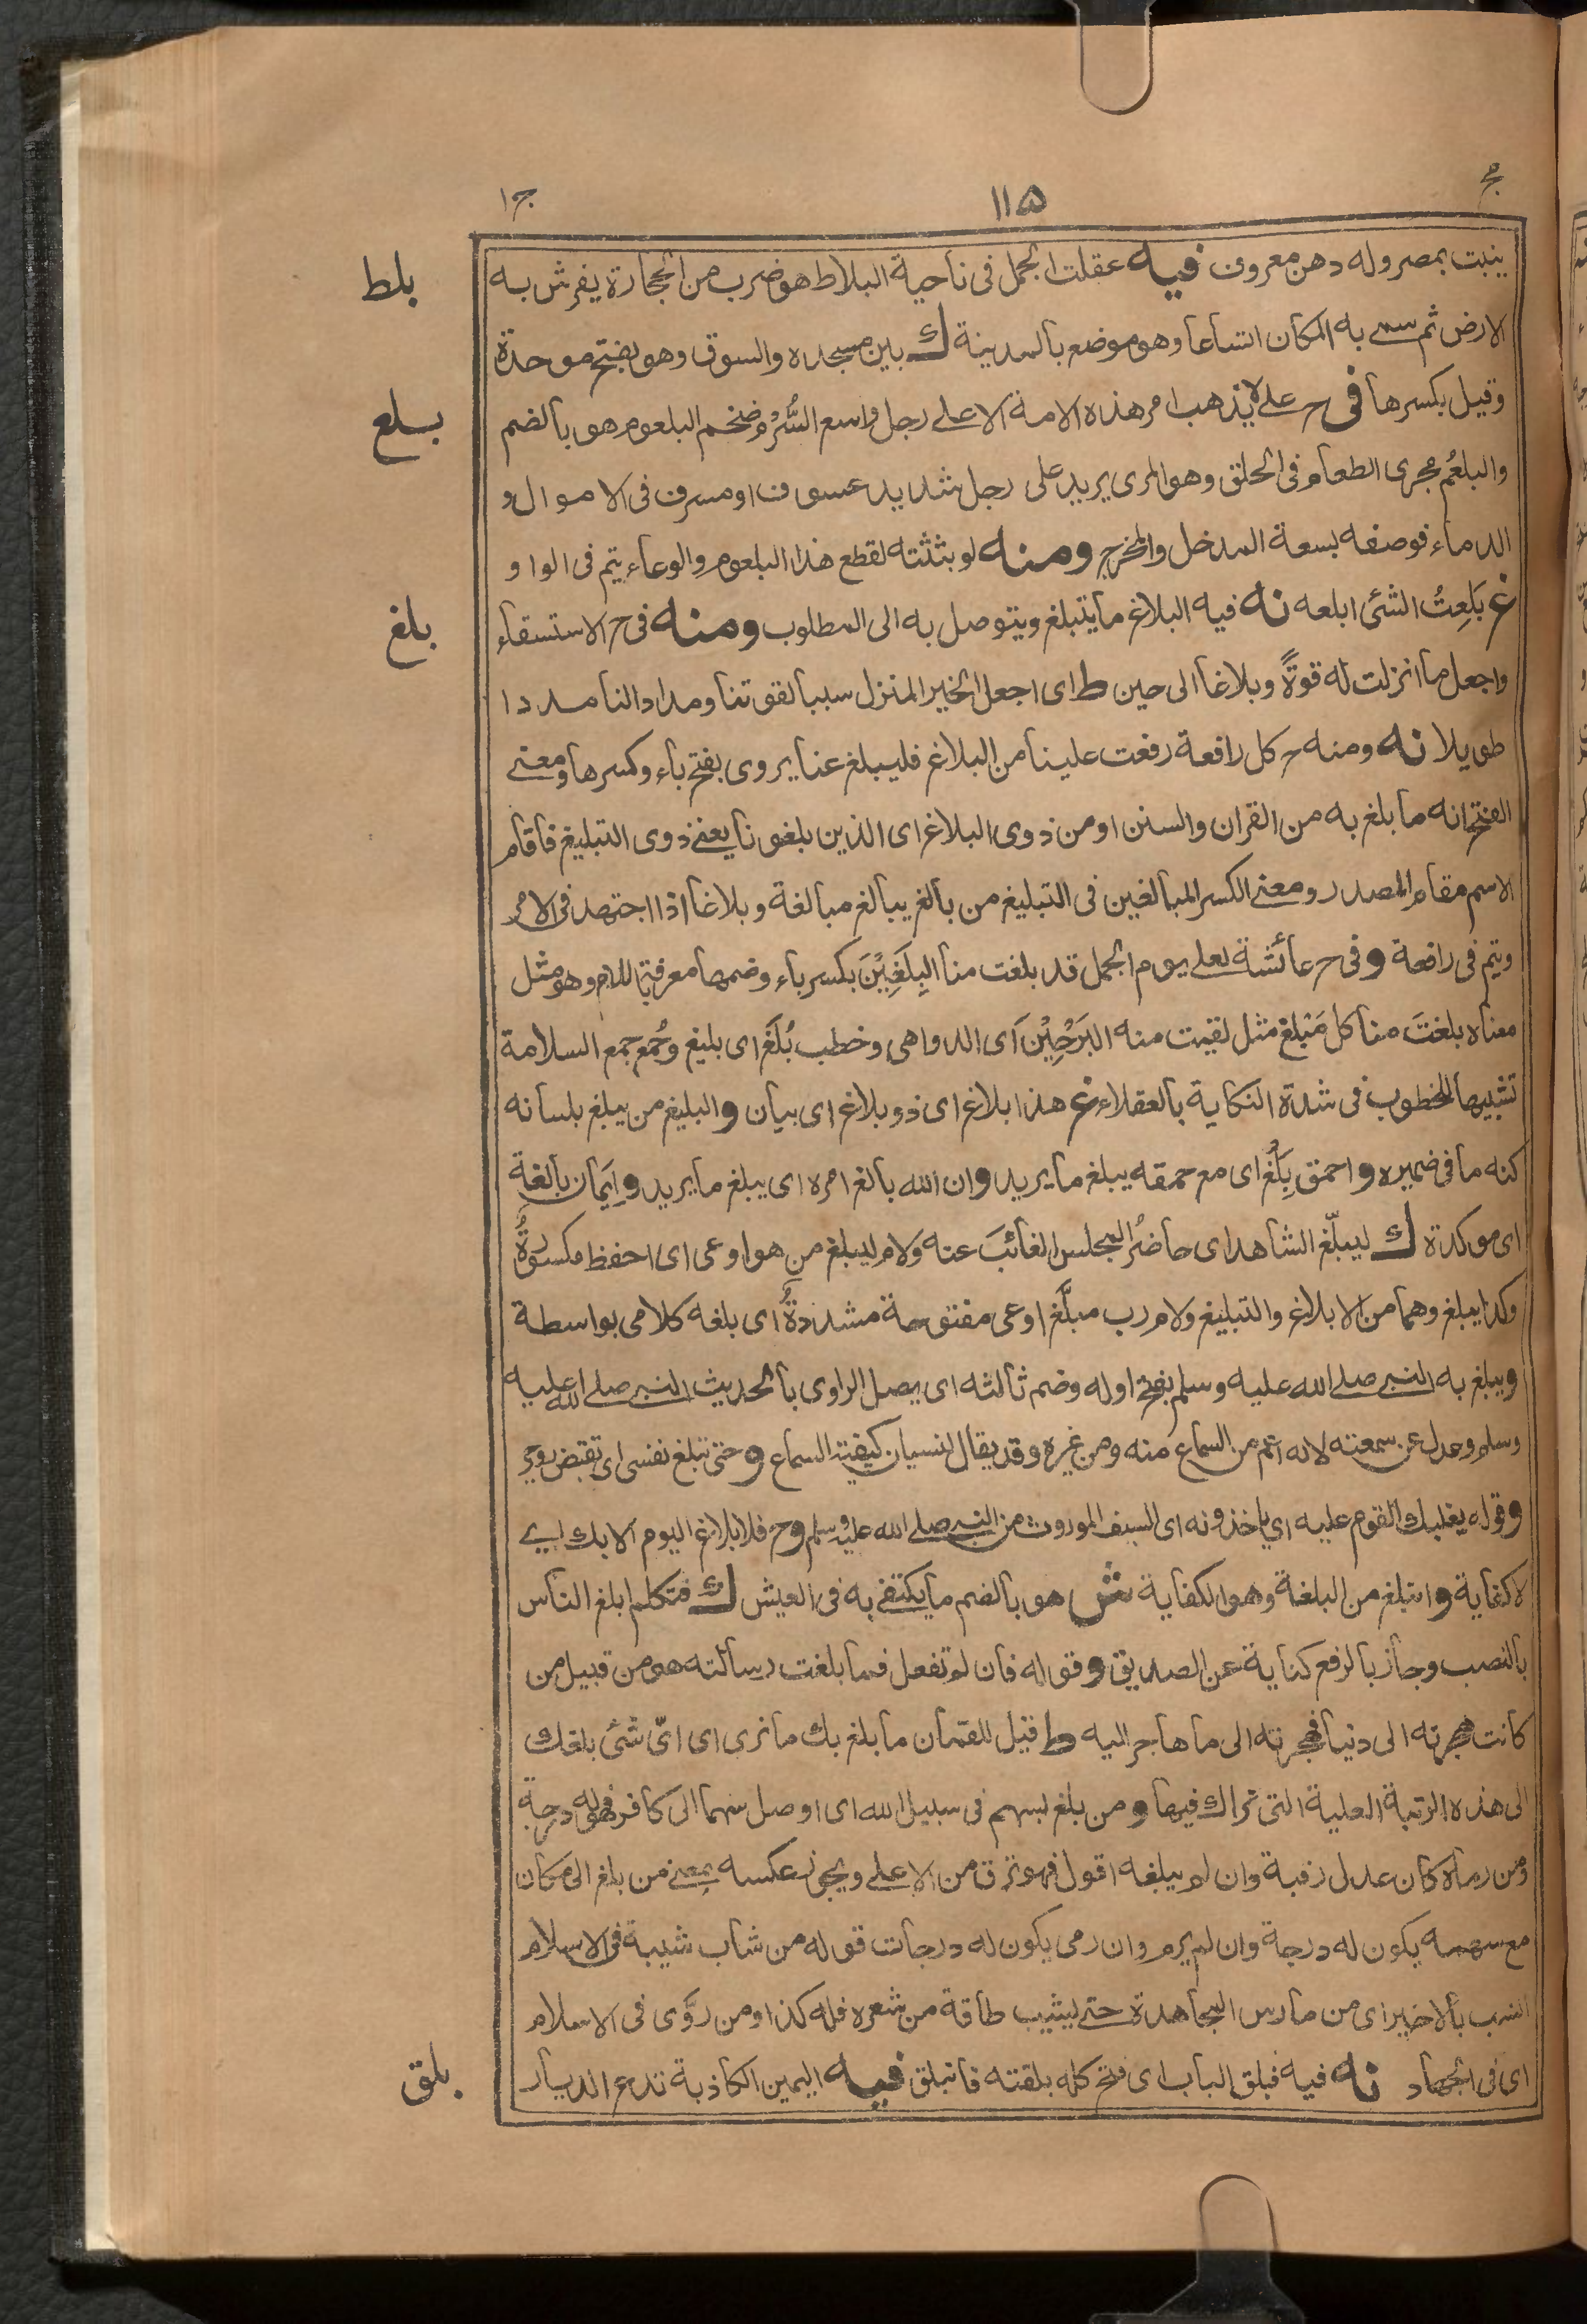 مج ١١٥ ج١
ينبت بمصر وله دهن معروف فيه عقلت الجمل فى ناحية البلاط هو ضرب من الحجارة يفرش به
بلط
الارض ثم سمے به المكان اتساعا وهو موضع بالمدينة ك بين مسجده والسوق وهو بفتح موحدة
وقيل بكسرها فى ح علے لا يذهب امر هذه الامة الا علے رجل واسع السُّرْم ضخم البلعوم هو بالضم
بلع
والبلعُم مجرى الطعام فى الحلق وهو المرى يريد على رجل شديد عسوف او مسرف فى الاموال و
الدماء فوصفه بسعة المدخل والمخرج ومنه لو بثثته لقطع هذا البلعوم والوعاء يتم فى الواو
غ بَلِعتُ الشئ ابلعه نه فيه البلاغ ما يتبلغ ويتوصل به الى المطلوب ومنه فى ح الاستسقاء
بلغ
واجعل ما انزلت له قوةً وبلاغا الى حين ط اى اجعل الخير المنزل سببا لقوتنا ومدادا لنا مددا
طويلا نه ومنه ح كل رافعة رفعت علينا من البلاغ فليبلغ عنا يروى بفتح باء وكسرها ومعنے
الفتح انه ما بلغ به من القران والسنن او من ذوى البلاغ اى الذين بلغونا يعنے ذوى التبليغ فاقام
الاسم مقام المصدر ومعنے الكسر المبالغين فى التبليغ من بالغ يبالغ مبالغة وبلاغا اذا اجتهد فى الامر
ويتم فى رافعة وفى ح عائشة لعلے يوم الجمل قد بلغت منا البِلَغِيْنَ بكسر باء وضمها مع فتح اللام وهو مثل
معناه بلغتَ منا كل مَبْلغ مثل لقيت منه البَرَحِيْنَ اى الدواهى وخطب بُلَغ اى بليغ وجُمع جمع السلامة
تشبيها للخطوب فى شدة النكاية بالعقلاء غ هذا بلاغ اى ذو بلاغ اى بيان والبليغ من يبلغ بلسانه
كنه ما فى ضميره واحمق بِلْغٌ اى مع حمقه يبلغ ما يريد وان الله بالغ امره اى يبلغ ما يريد وايمان بالغة
اى موكدة ك ليبلّغ الشاهد اى حاضرُ المجلس الغائبَ عنه ولام ليبلغ من هو اوعى اى احفظ مكسورةٌ
وكذا يبلغ وهما من الابلاغ والتبليغ ولام رب مبلَّغ اوعى مفتوحة مشددةٌ اى بلغه كلامى بواسطة
ويبلغ به النبے صلے الله عليه وسلم بفتح اوله وضم ثالثه اى يصل الراوى بالحديث النبے صلے الله عليه
وسلم وعدل عن سمعته لانه اعم من السماع منه ومن غيره وقد يقال لنسيان كيفية السماع وحتى تبلغ نفسى اى تقبض روحى
وقوله يغلبك القوم عليه اي ياخذونه اى السيف الموروث من النبے صلے الله عليه وسلم وح فلا بلاغ اليوم الا بك اے
لا كفاية واتبلغ من البلغة وهو الكفاية ش هو بالضم ما يكتفے به فى العيش ك فتكلم ابلغ الناس
بالنصب وجاز بالرفع كناية عن الصديق وقوله فان لم تفعل فما بلغت رسالته هو من قبيل من
كانت هجرته الى دنيا فهجرته الى ما هاجر اليه ط قيل للقمان ما بلغ بك ما نرى اى اىّ شئ بلغك
الى هذه الرتبة العلية التى نراك فيها ومن بلغ بسهم فى سبيل الله اى اوصل سهما الى كافر فهو له درجة
ومن رماه كان عدل رقبة وان لم يبلغه اقول فهو ترق من الاعلے ويجوز عكسه بمعنے من بلغ الى مكان
مع سهمه يكون له درجة وان لم يرم وان رمى يكون له درجات قوله من شاب شيبة فى الاسلام
انسب بالاخير اى من مارس المجاهدة حتے يشيب طاقة من شعره فله كذا ومن روَّى فى الاسلام
اى فى الجهاد نه فيه فبلق الباب اى فتح كله بلقته فانبلق فيه اليمين الكاذبة تدع الديار
بلق